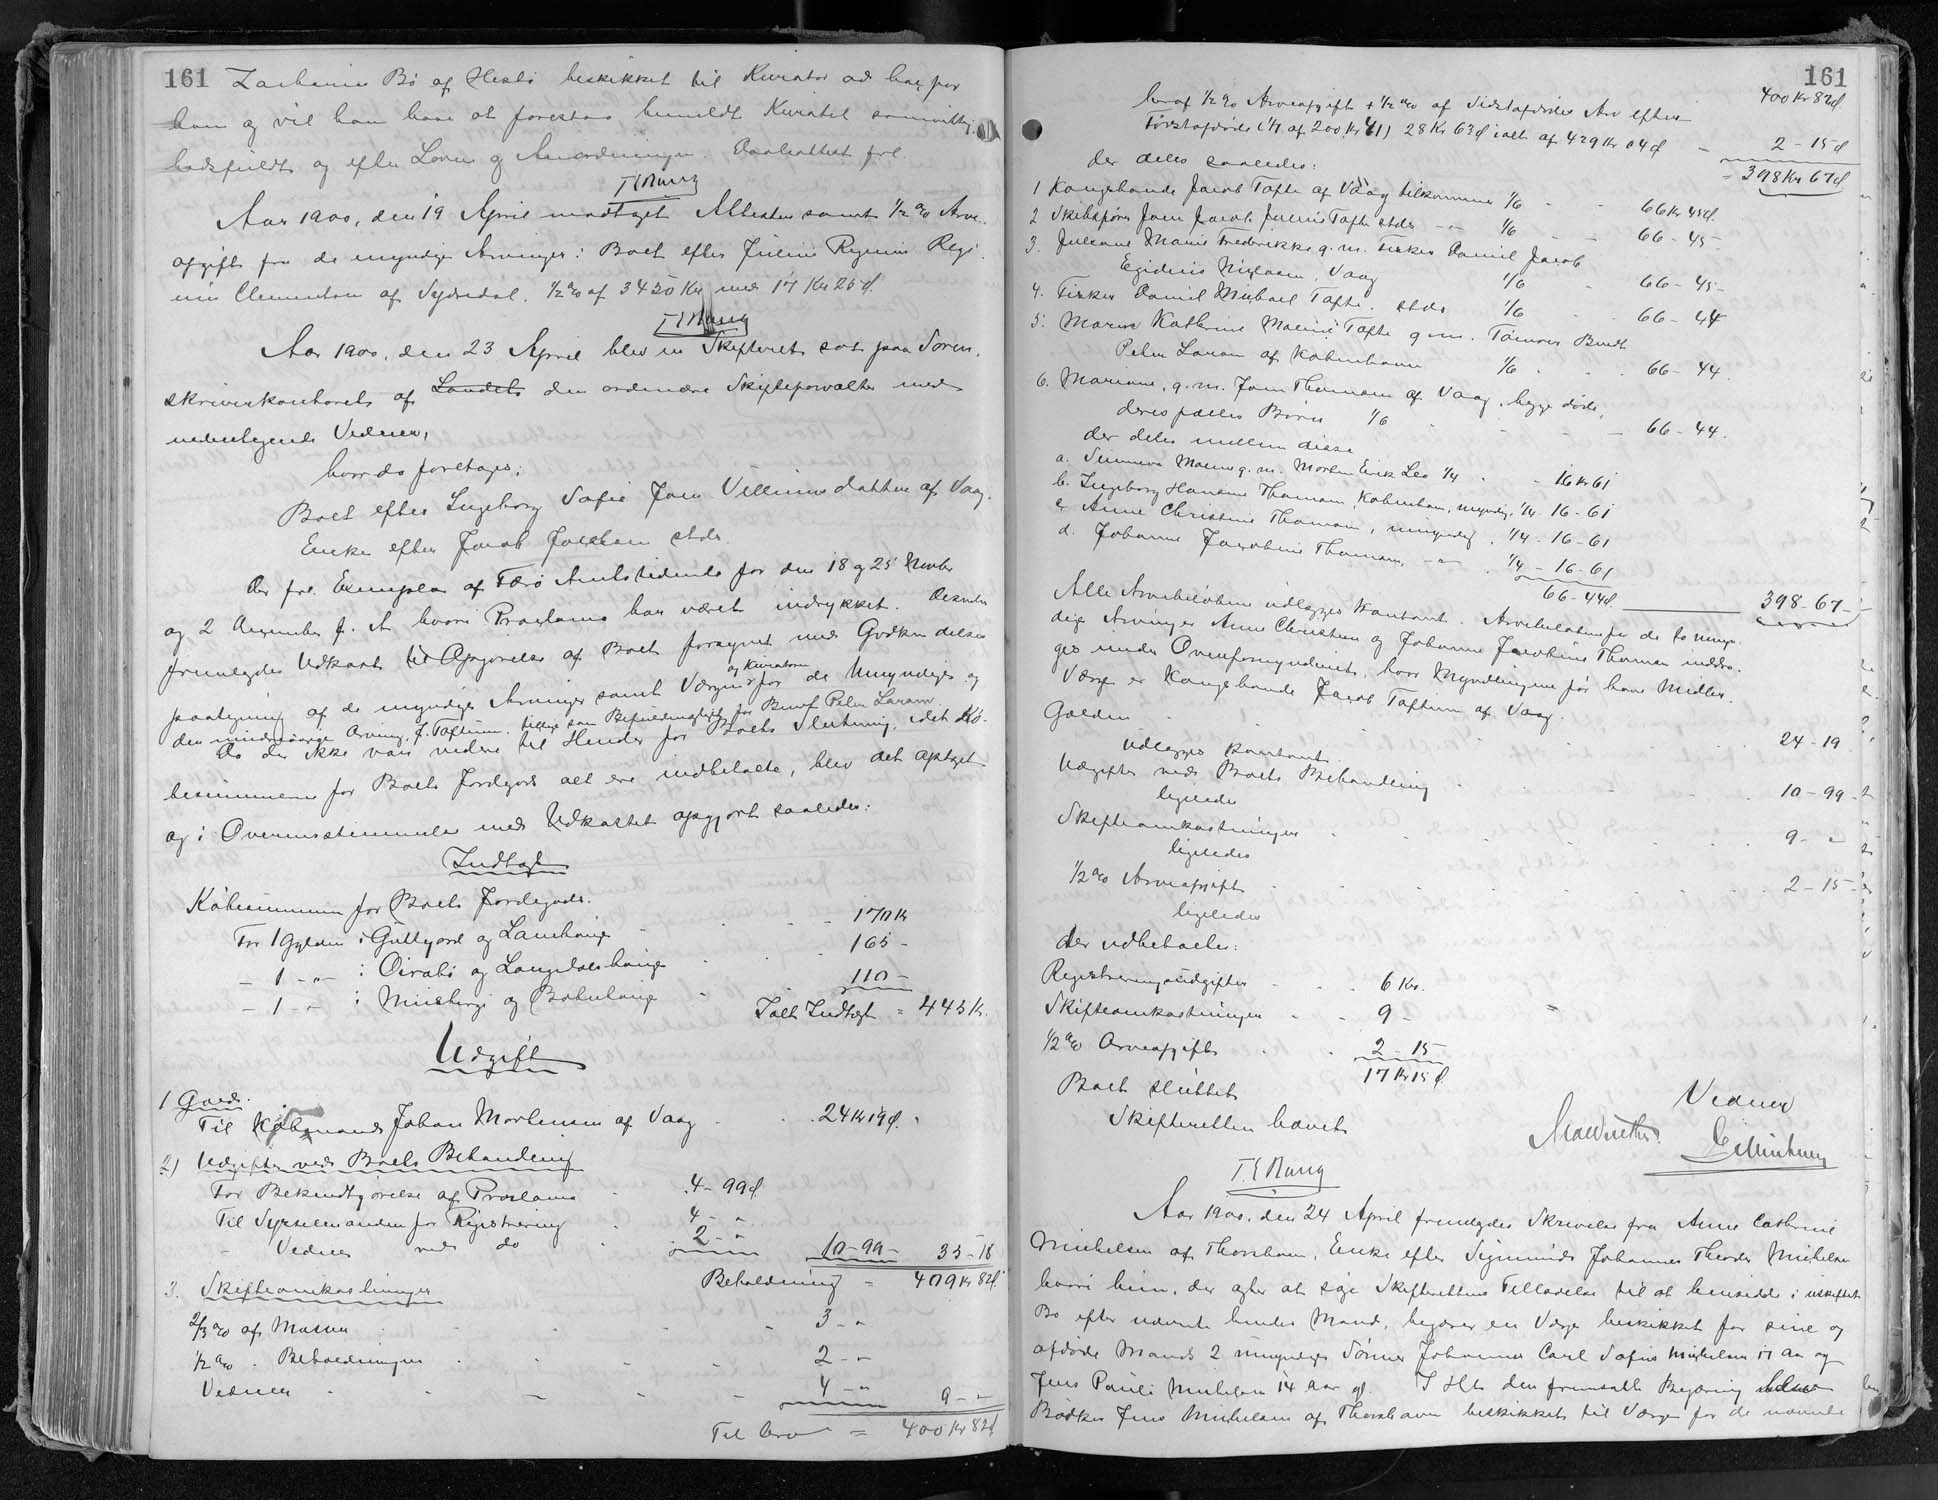 161 Zacharias Bø af Hestø beskikket til Kurator ad hac for
ham og vil han have at forestaa bemeldt Kuratel samvittig-
hedsfuldt og efter Loven og Anordninger. Saaledes fol.
Aar 1900, den 19 April modtaget Attester samt 1/2 % Arve-
afgift fra de myndige Arvinger i Boet efter
Clementsen af Sydredal. 1/2 % af 3450 Kr med 17 Kr 25 Ø.
Aar 1900, den 23 April blev en Skifteret sat paa Soren-
skriverkontoret af Landets den ordinære Skifteforvalter med
undertegnede Vidner,
hvor da foretages:
Boet efter Ingeborg Sofie Joen Villiumsdatter af Vaag.
Enke efter Jacob Joensen stds.
Der frl. Exemplar af Færø Amtstidende for den 18 og 25 Novbr
og 2 December f. A. hvori Proclama har været indrykket. Desuden
fremlagdes Udkast til Opgjørelse af Boet forsynet med Godkendelses
paategning af de myndige Arvinger samt Værgen og Kuratoren for de Umyndige og
den mindreaarige Arving J. Toftum, tillige som Befuldmægtiget for Bundt Peter Larsen.
Da der ikke var videre til Hinder for Boets Slutning, idet Kø-
besummerne for Boets Jordegods alt ere indbetalte, blev det optaget
og i Overensstemmelse med Udkastet opgjort saaledes:
Indtægt
Købesummen for Boets Jordegods.
For 1 Gylden i og 170 Kr
- 1 -"- i Oirabø og 165 -
- 1 -"- i og 110 -
Ialt Indtægt = 445 Kr.
Udgift
1 Gæld.
Til Købmand Johan Mortensen af Vaag . . 24 Kr 19 Ø.
2) Udgifter ved Boets Behandling
For Bekendtgjørelse af Proclama 4 - 99 Ø
Til Sysselmanden for Registrering 4 - "
- Vidner ved do 2 - " 10 - 99 - 35 - 18
Beholdning = 409 Kr 82 Ø
3. Skifteomkostninger
2/3 % af Massen 3 - "
1/2 % . Beholdningen 2 - "
Vidner 4 - " 9 - "
Til Arv = 400 Kr 82 Ø
161
400 Kr 82 Ø
heraf 1/2 % Arveafgift + 1/2 % af Sidstafdødes Arv efter
Førstafdøde (1/7 af 200 Kr 41) 28 Kr 63 Ø ialt af 429 Kr 04 Ø - 2 - 15 Ø
der deles saaledes: = 398 Kr 67 Ø
1 Kongsbonde Jacob Tofte af Vaag tilkommer 1/6 - - 66 Kr 45 Ø.
2 Skibsfører Joen Jacob Julius Tofte stds -"- 1/6 - - 66 - 45 -
3. Juliane Marie Frederikke g. m. Fisker Daniel Jacob
Egidius Niclasen, Vaag 1/6 - 66 - 45 -
4. Fisker Daniel Michael Tofte. stds 1/6 - 66 - 44
5. Maren Kathrine Malene Tofte g. m. Tømrer Bundt
Peter Larsen af København 1/6 . . . 66 - 44.
6. Mariane, g. m. Joen Thomsen af Vaag, begge døde,
deres fælles Børn 1/6 - - - - 66 - 44.
der deles mellem disse
a. Sunneva Malene g. m. Morten Erik Leo 1/4 . - 16 Kr 61
b. Ingeborg Hansine Thomsen, København, myndig, 1/4 - 16 - 61
c. Anne Christine Thomsen, umyndig, 1/4 - 16 - 61
d. Johanne Jacobine Thomsen, -"- . 1/4 - 16 - 61
66 - 44 Ø. 398 - 67 -
Alle Arvebeløbene udlægges kontant. Arvebeløbene for de to umyn-
dige Arvinger Anne Christine og Johanne Jacobine Thomsen inddra-
ges under Overformynderiet, hvor Myndlingerne før have Midler.
Værge er Kongsbonde Jacob Toftum af Vaag.
Gælden . . . 24 - 19
udlægges kontant.
Udgifter ved Boets Behandling . . 10 - 99 -
ligeledes
Skifteomkostninger . . . 9 - "
ligeledes
1/2 % Arveafgift . . . 2 - 15 -
ligeledes
der udbetales:
Registreringsudgifter - - - 6 Kr.
Skifteomkostninger - - 9 -
1/2 % Arveafgift . . 2 - 15
17 Kr 15 Ø.
Boet sluttet
Skifteretten hævet
Vidner
Aar 1900, den 24 April fremlagdes Skrivelse fra Anne Cathrine
Michelsen af Thorshavn, Enke efter Sigmund Johannes Theodor Michelsen
hvori hun, der agter at søge Skifterettens Tilladelse til at hensidde i uskiftet
Bo efter nævnte hendes Mand, begærer en Værge beskikket for sine og
afdøde Mands 2 umyndige Sønner Johannes Carl Sofus Michelsen 17 Aar og
Jens Pauli Michelsen 14 Aar gl. I Hht. den fremsatte Begæring blev
Bødker Jens Michelsen af Thorshavn beskikket til Værge for de nævnte